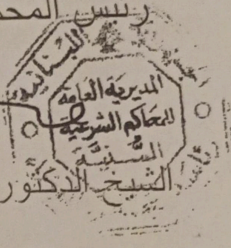 رئيس المحا
اللبنانية
المديرية العامة
للمحاكم الشرعية
السنية
الشيخ الدكتور